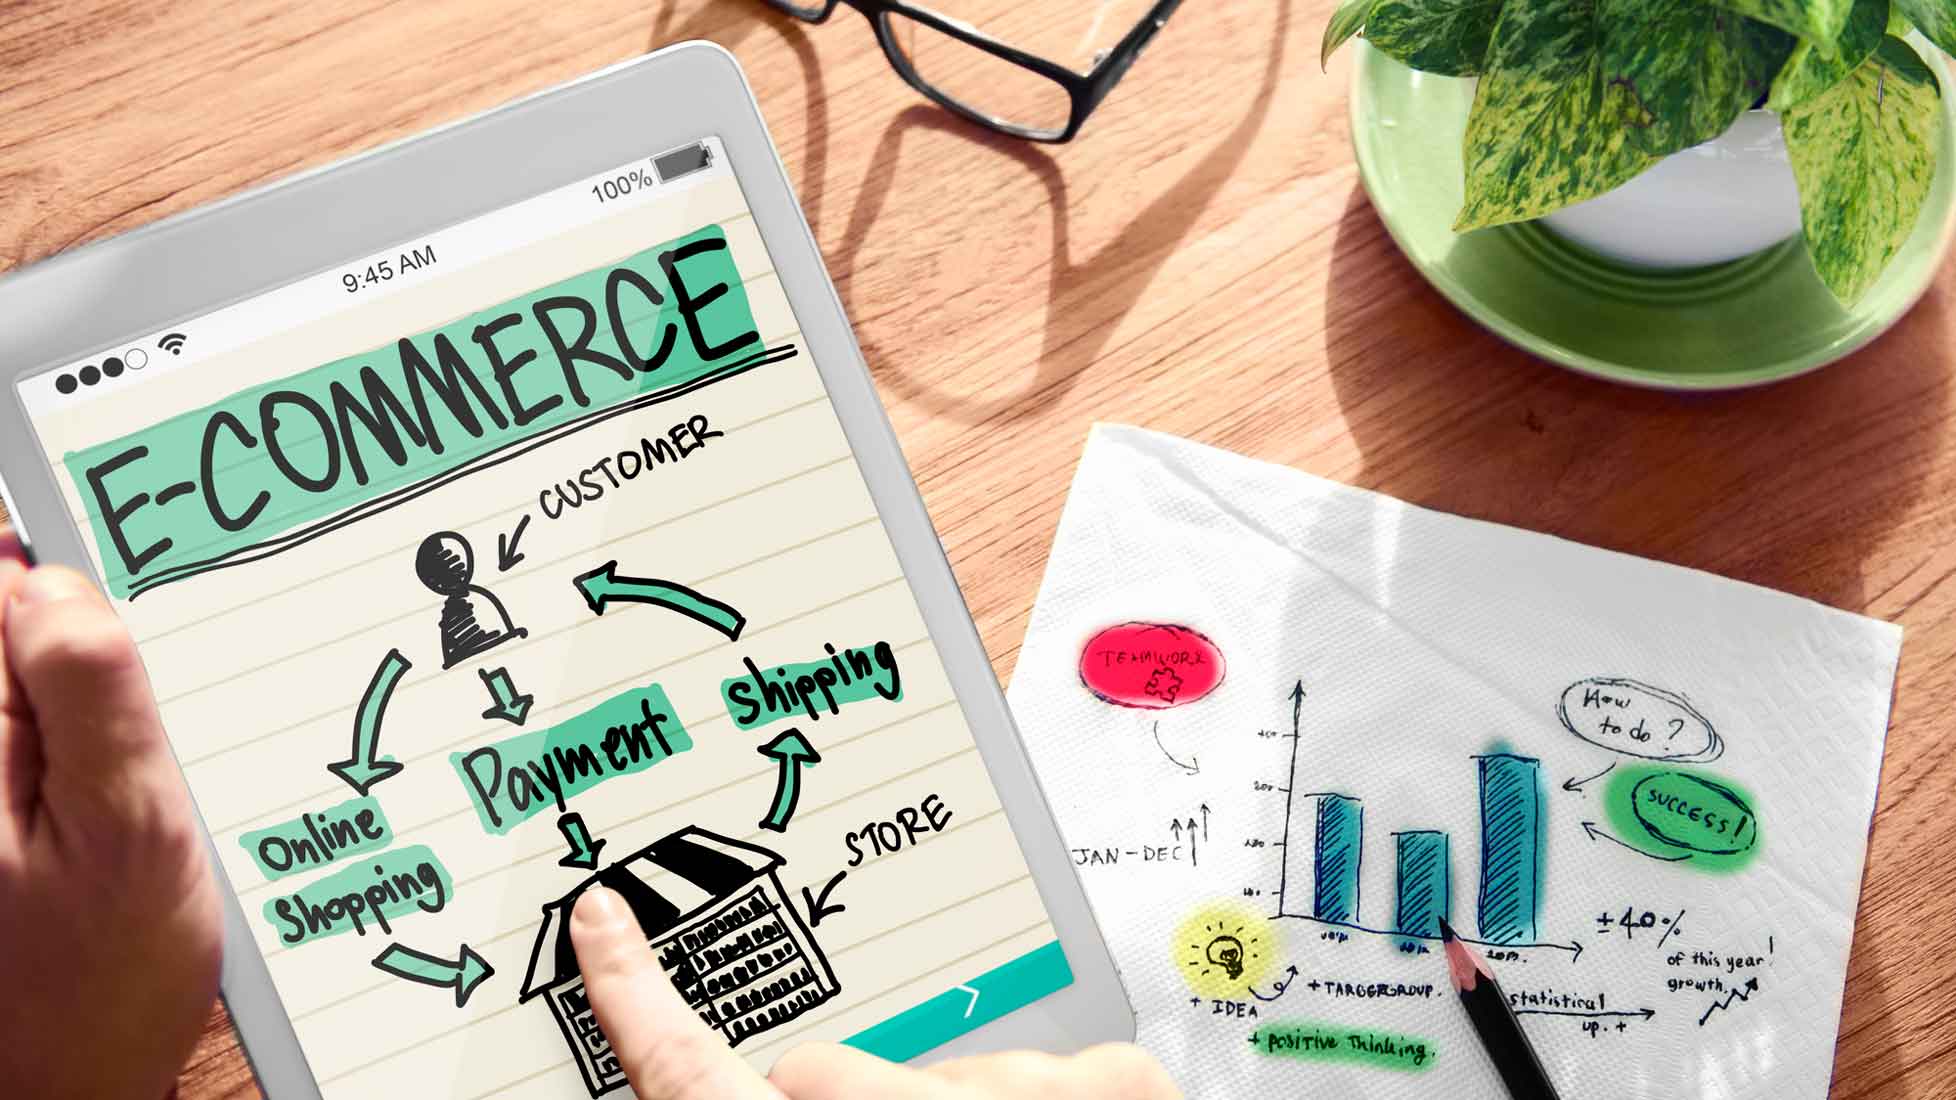 100%
9:45 AM
E-COMMERCE
CUSTOMER
Shipping
Payment
Online
Shopping
STORE
TEAMWORK
How
to do?
SUCCESS!
JAN-DEC
200
±40%
of this year!
growth.
+ IDEA
+ TARGERGROUP.
statistical
up. +
+ positive thinking.